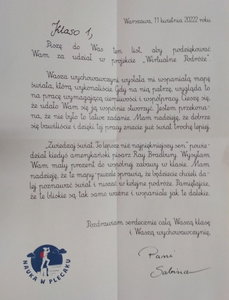 Warszawa, 11 kwietnia 2022 roku
Klaso 1,
Piszę do Was ten list, aby podziękować
Wam za udział w projekcie "Wirtualne Podróże".
Wasza wychowawczyni wysłała mi wspaniałą mapę
świata, którą wykonaliście. Gdy na nią patrzę, wygląda to
na pracę wymagającą cierpliwości i współpracy. Cieszę się,
że udało Wam się ją wspólnie stworzyć. Jestem przekona-
na, że nie było to łatwe zadanie. Mam nadzieję, że dobrze
się bawiliście i dzięki tej pracy znacie już świat trochę lepiej.
"Zwiedzaj świat. To lepsze niż najpiękniejszy sen." powie-
dział kiedyś amerykański pisarz Ray Bradbury. Wysyłam
Wam mały prezent do wspólnej zabawy w klasie. Mam
nadzieję, że te mapy puzzle sprawią, że będziecie chcieli da-
lej poznawać świat i ruszać w kolejne podróże. Pamiętajcie,
że te bliskie są tak samo ważne i wspaniałe jak te dalekie.
Pozdrawiam serdecznie całą Waszą klasę
i Waszą wychowawczynię,
Pani
Sabina
NAUKA W PLECAKU